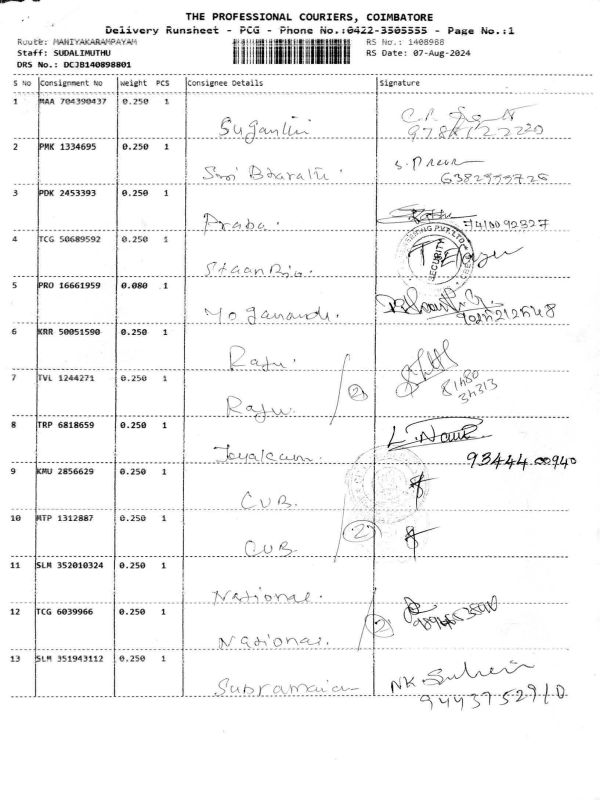 THE PROFESSIONAL COURIERS, COIMBATORE
Delivery Runsheet - PCG - Phone No.:0422-3505555 - Page No.:1
Route: MANIYAKARAMPAYAM RS No.: 1408988
Staff: SUDALIMUTHU RS Date: 07-Aug-2024
DRS No.: DCJB140898801
S No Consignment No Weight PCS Consignee Details Signature
1 MAA 704390437 0.250 1
Suganthi
2 PMK 1334695 0.250 1
Sri Bharathi.
3 PDK 2453393 0.250 1
Praba. 7410092327
4 TCG 50689592 0.250 1
SECURITY
5 PRO 16661959 0.080 1
Yoganandh.
6 KRR 50051590 0.250 1
Raju.
7 TVL 1244271 0.250 1 2
Raju. 
8 TRP 6818659 0.250 1
Jeyakam. 93444 00940
9 KMU 2856629 0.250 1
CUB.
10 MTP 1312887 0.250 1 2
CUB.
11 SLM 352010324 0.250 1
National.
12 TCG 6039966 0.250 1 2
National.
13 SLM 351943112 0.250 1
NK.